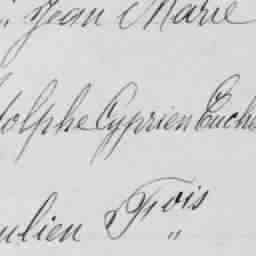 Jean Marie
dolphe Cyprien Euch
ulien Fois
"